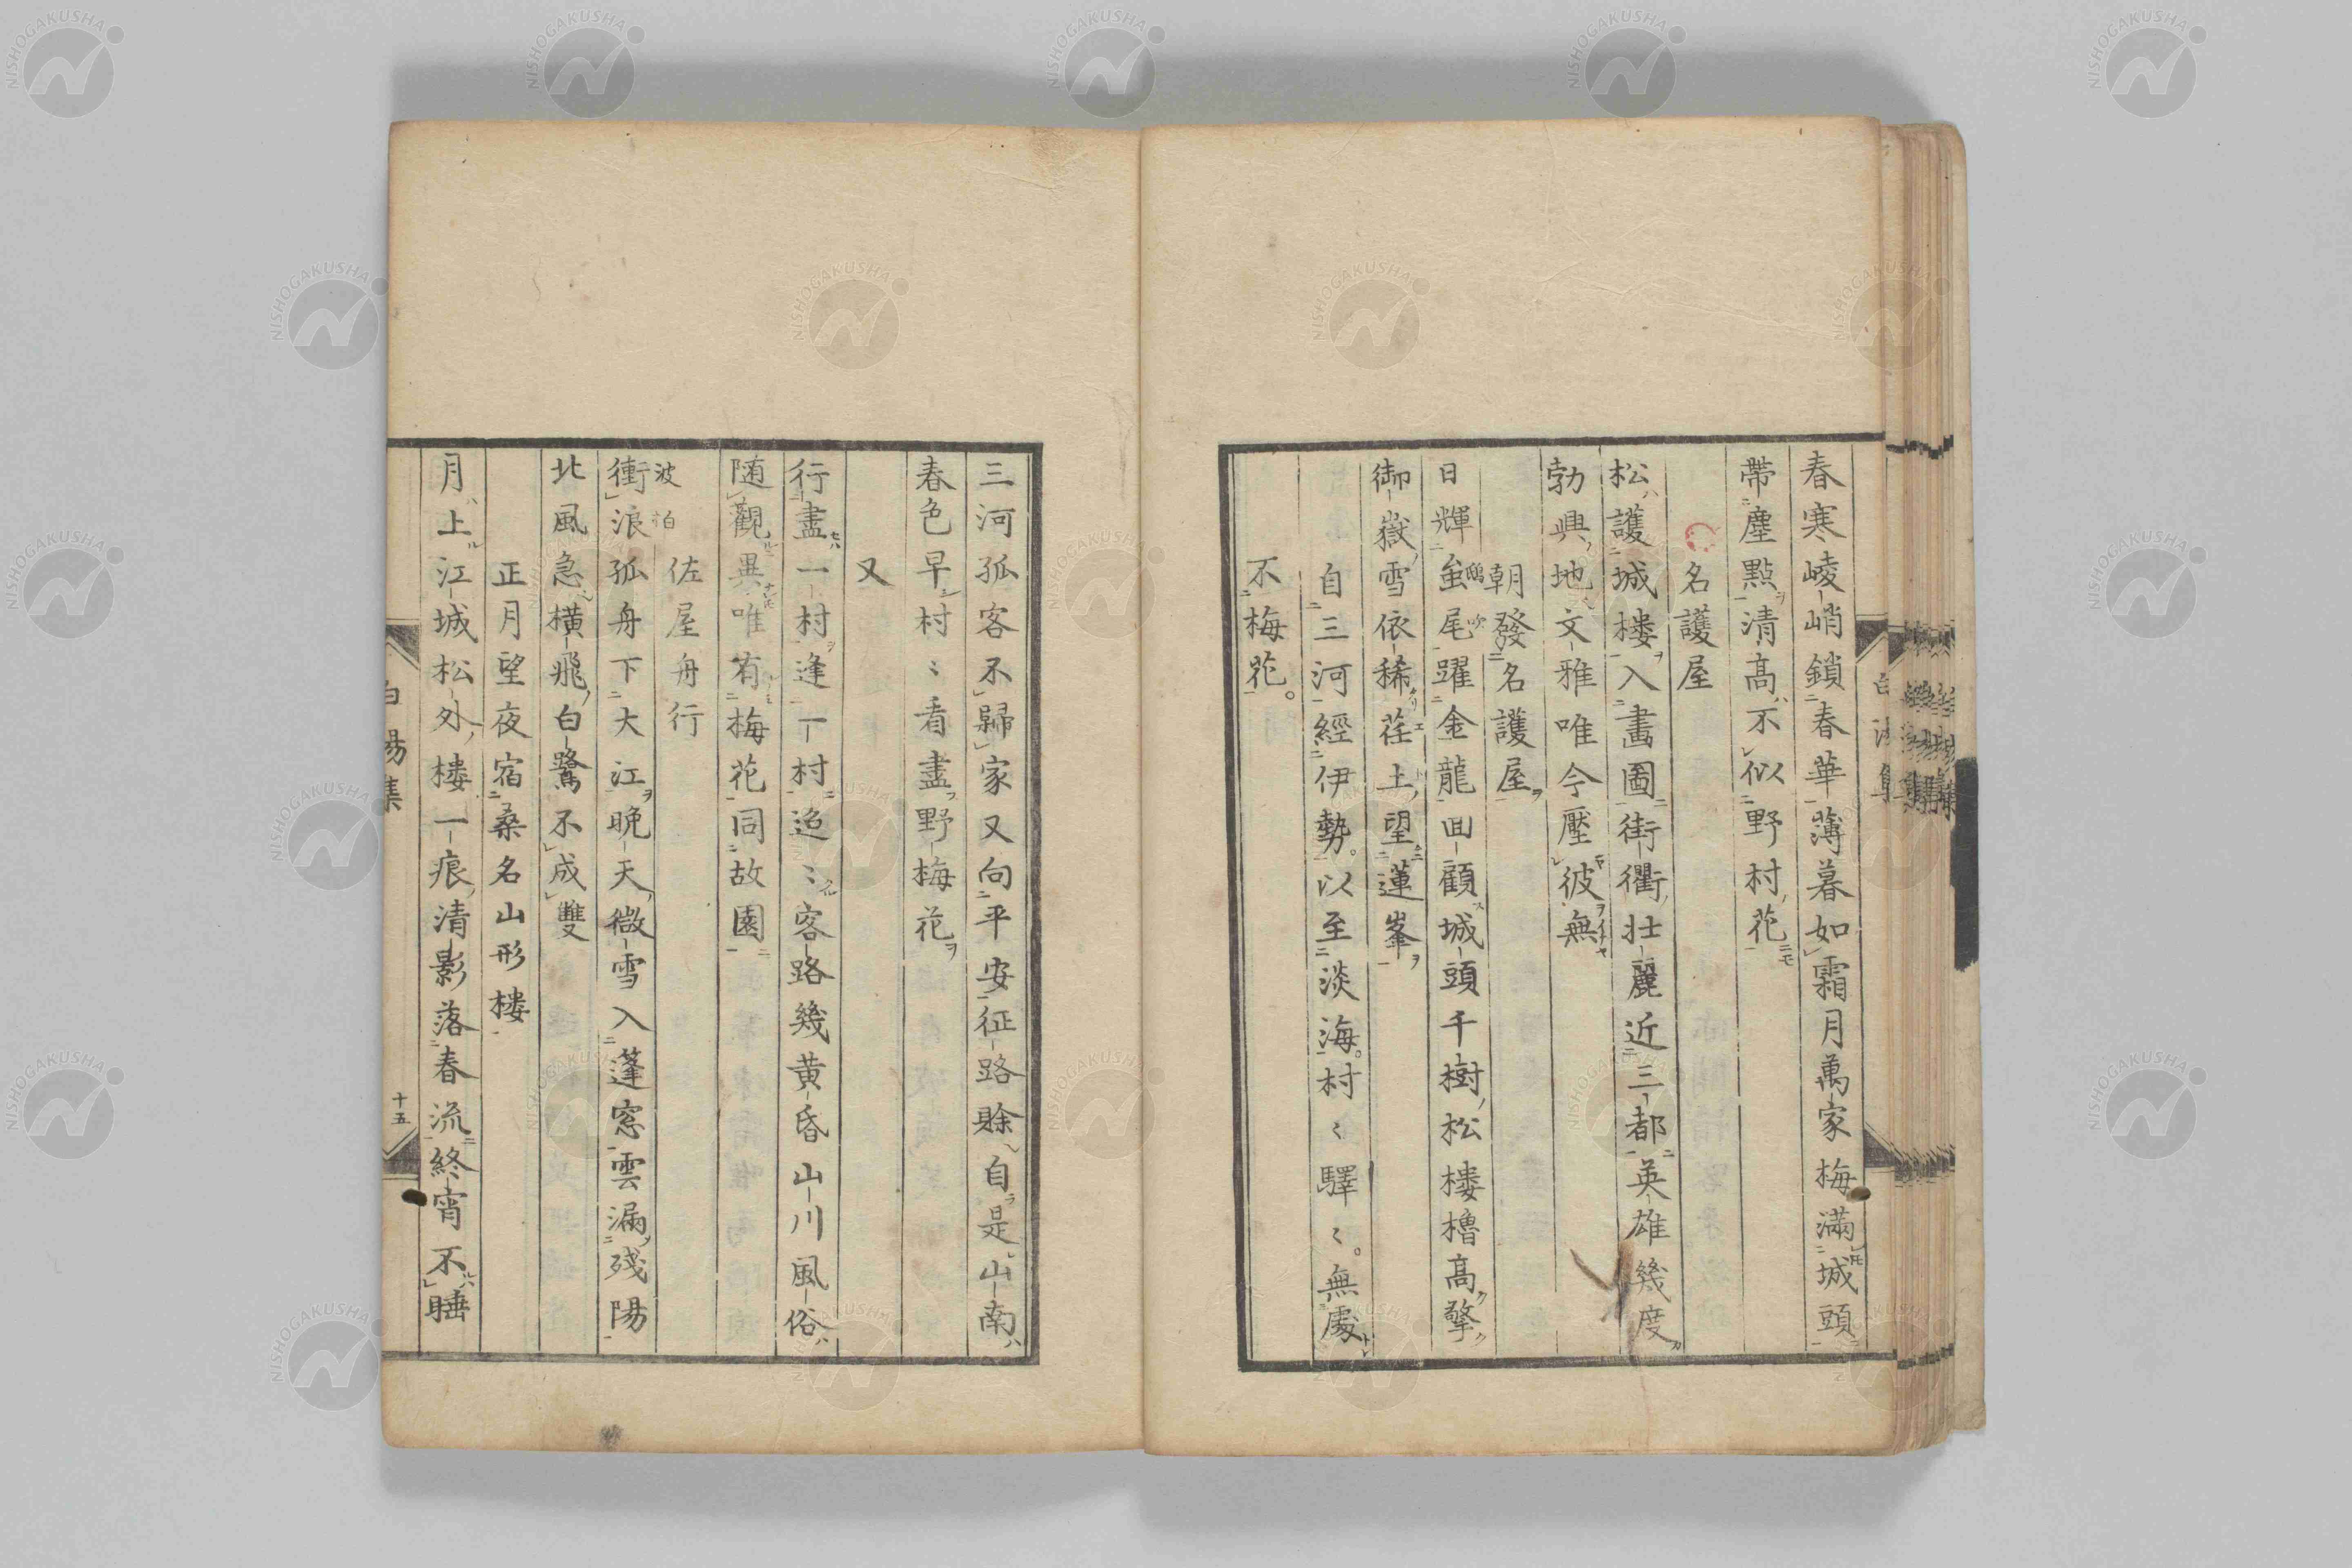 春寒崚峭鎖春華薄暮如霜月萬家梅滿城頭
帶塵點清高不似野村花
名護屋
松護城樓入畫圖街衢壯麗近三都英雄幾度
勃興地文雅唯今壓彼無
朝發名護屋
日輝虽尾躍金龍回顧城頭千樹松樓櫓高擎
鴟
御嶽雪依稀荏土望蓮峯
自三河經伊勢。以至淡海。村〻驛〻。無處
不梅花。
三河孤客不歸家又向平安征路賒自是山南
春色早村〻看盡野梅花
又
行盡一村逢一村迢〻客路幾黄昏山川風俗
随觀異唯有梅花同故園
佐屋舟行
波
衝浪孤舟下大江晚天微雪入蓬窓雲漏殘陽
北風急横飛白鷺不成雙
正月望夜宿桑名山形樓
月上江城松外樓一痕清影落春流終宵不睡
十五